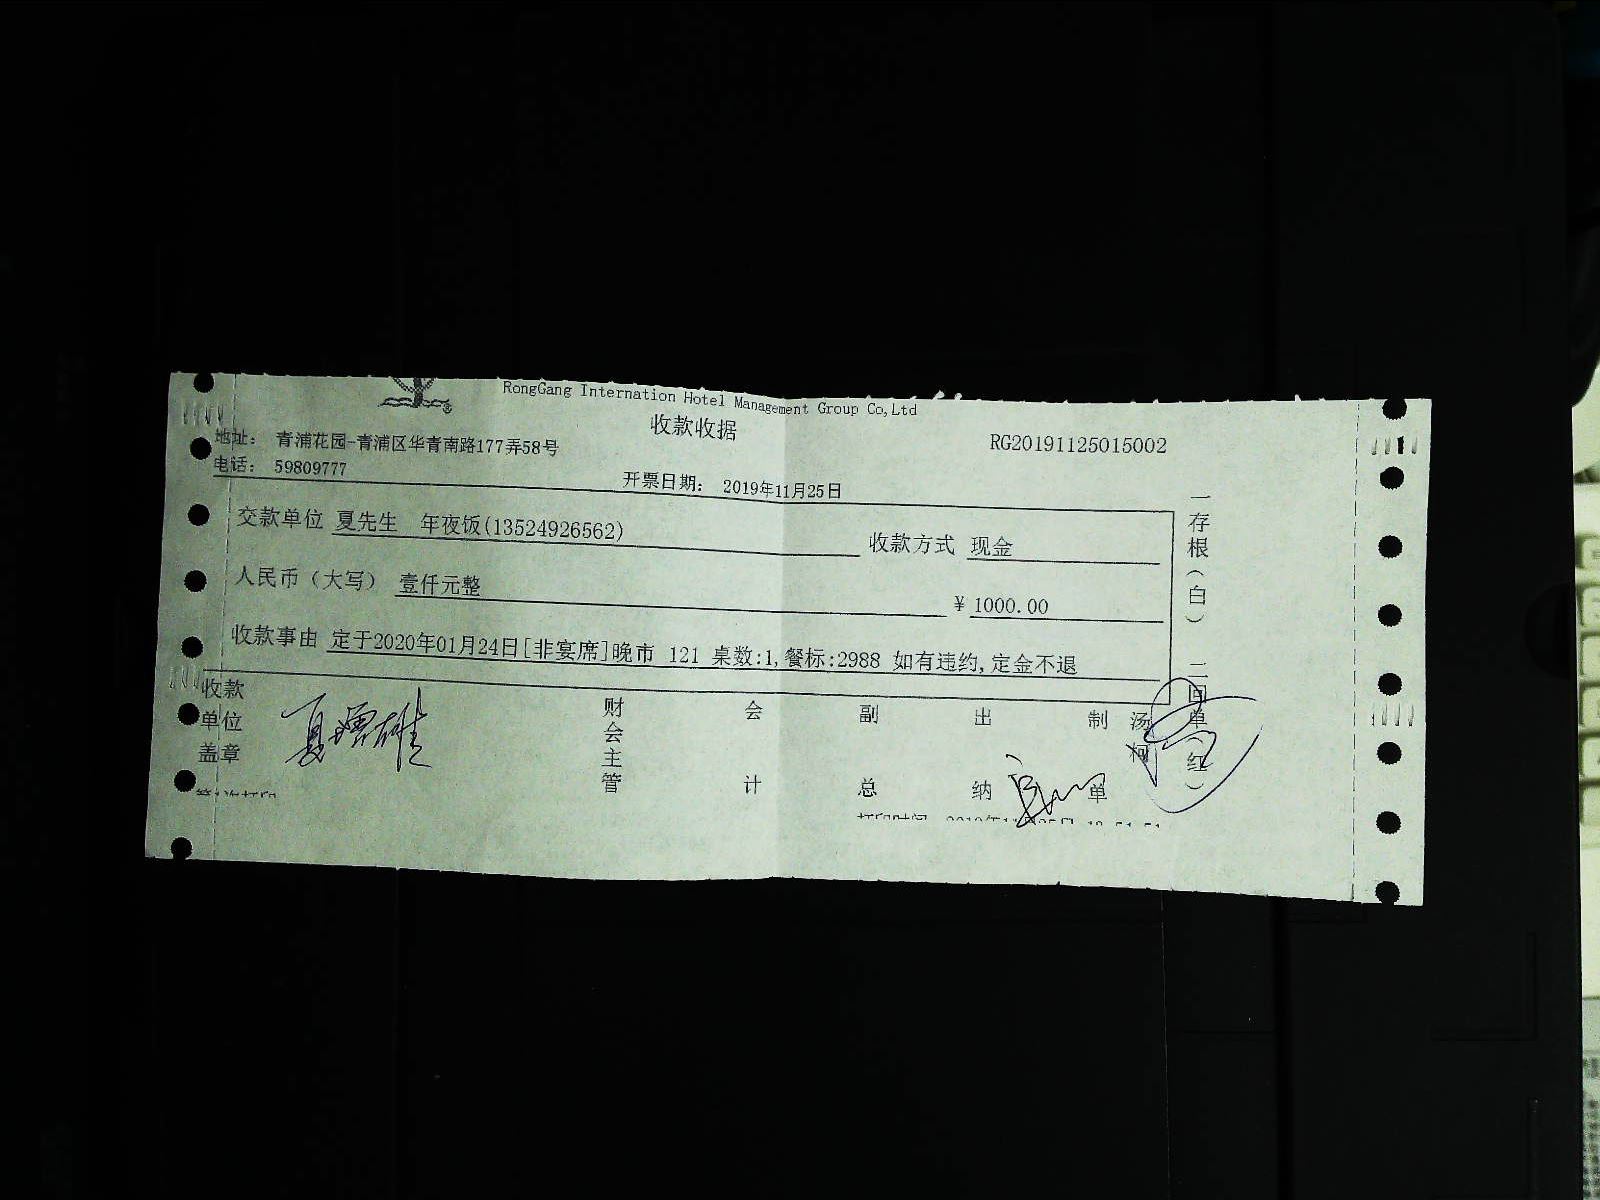 RongGang Internation Hotel Management Group Co,Ltd
收款收据
地址： 青浦花园-青浦区华青南路177弄58号
RG20191125015002
电话： 59809777
开票日期： 2019年11月25日
交款单位 夏先生 年夜饭(13524926562)
收款方式 现金
人民币（大写） 壹仟元整
¥ 1000.00
收款事由 定于2020年01月24日[非宴席]晚市 121 桌数:1,餐标:2988 如有违约,定金不退
一存根（白） 二回单（红）
收款单位盖章
财会主管
会计
副总
出纳
制单
汤柯